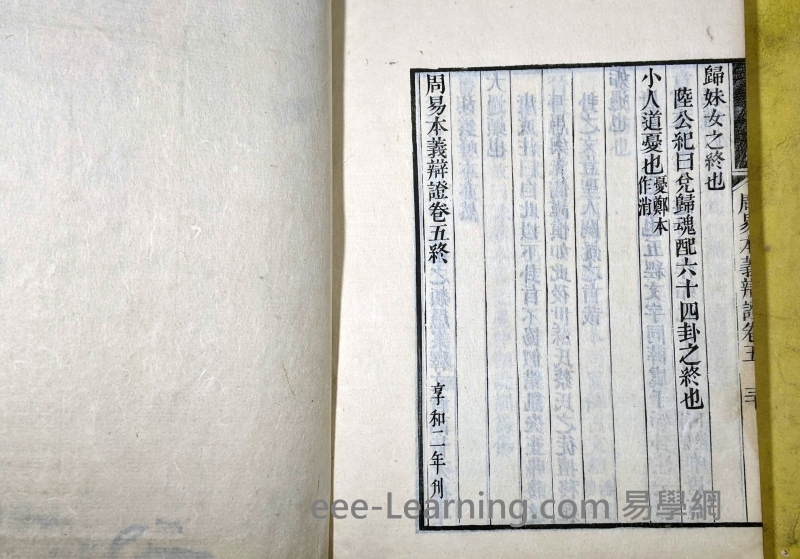 歸妹女之終也
陸公紀曰兌歸魂配六十四卦之終也
小人道憂也憂鄭本作消
周易本義辯證卷五終
享和二年刋
周易本義辯證卷五
eee-Learning.com 易學網